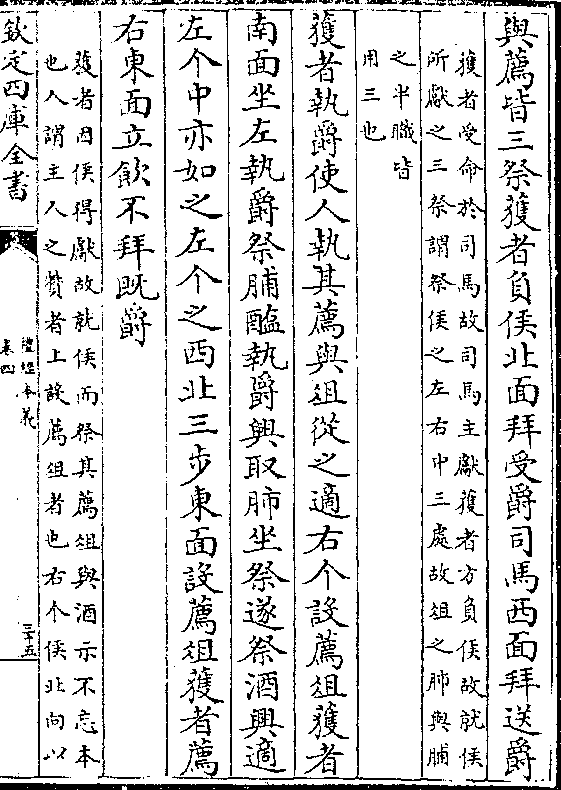 與薦皆三祭獲者負侯北面拜受爵司馬西面拜送爵
獲者受命於司馬故司馬主獻獲者方負侯故就侯
所獻之三祭謂祭侯之左右中三處故俎之肺與脯
之半膱皆
用三也
獲者執爵使人執其薦與俎從之適右个設薦俎獲者
南面坐左執爵祭脯醢執爵興取肺坐祭遂祭酒興適
左个中亦如之左个之西北三步東面設薦俎獲者薦
右東面立飲不拜既爵
獲者因侯得獻故就侯而祭其薦俎與酒示不忘本
也人謂主人之贊者上設薦俎者也右个侯北向以
欽定四庫全書
禮經本義
卷四
三十五